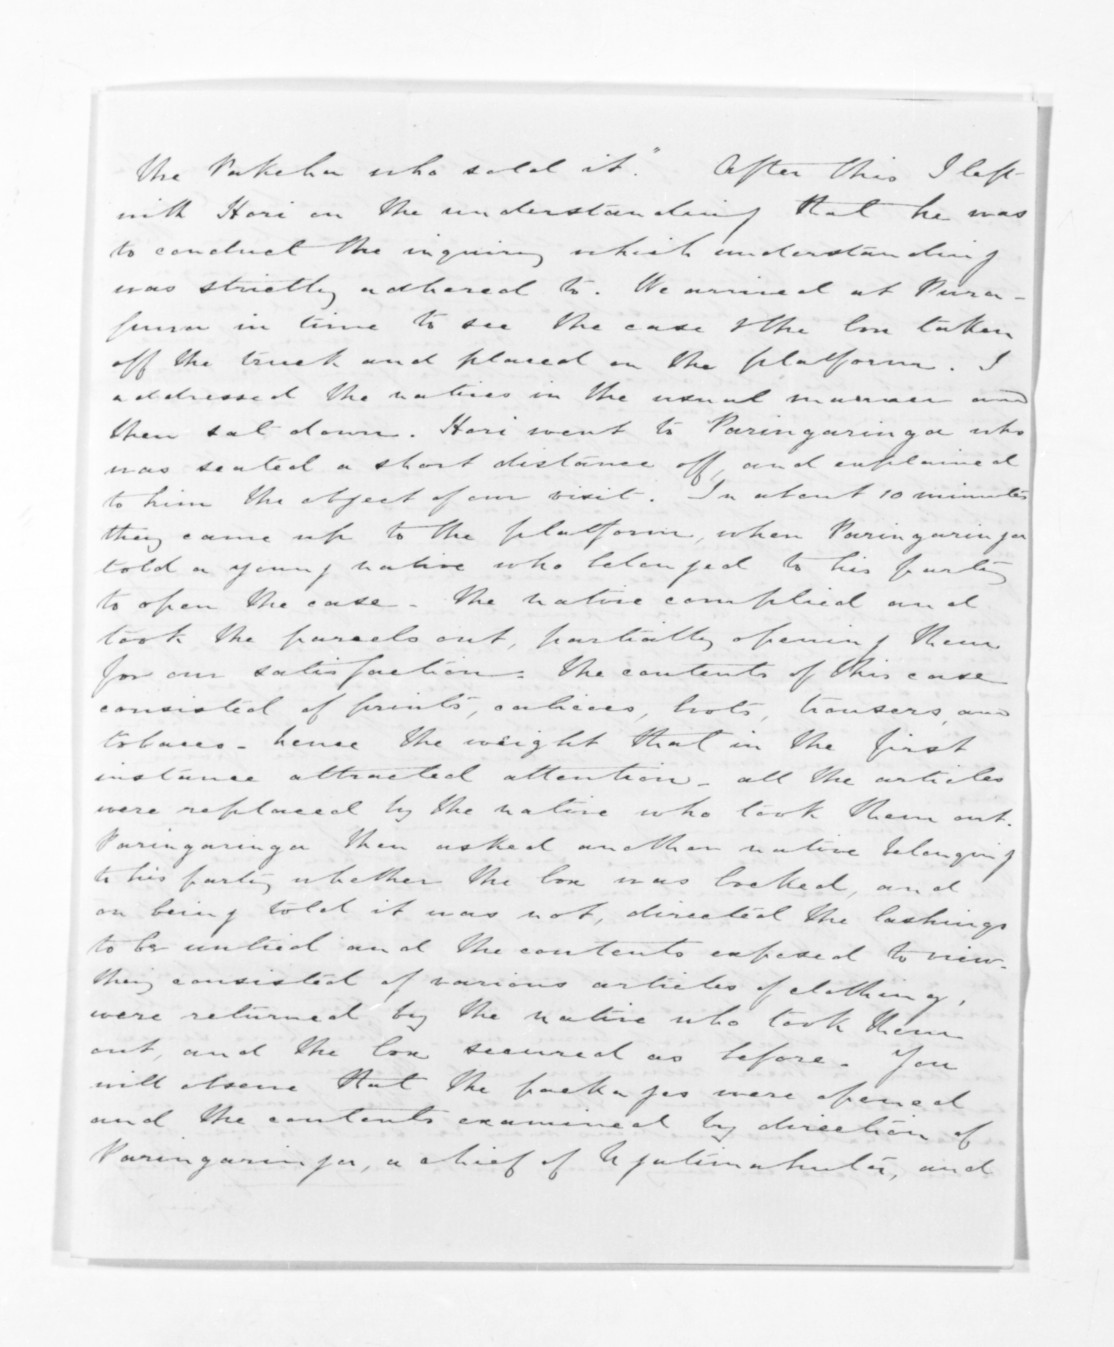 the Pakeha who sold it." After this I left
with Hori on the understanding that he was
to conduct the inquiry which understanding
was strictly adhered to. We arrived at Pura-
pura in time to see the case & the box taken
off the truck and placed on the platform. I
addressed the natives in the usual manner and
then sat down. Hori went to Paringaringa who
was seated a short distance off, and explained
to him the object of our visit. In about 10 minutes
they came up to the platform, when Paringaringa
told a young native who belonged to his party
to open the case. The native complied and
took the parcels out, partially opening them
for our satisfaction. The contents of this case
consisted of prints, calicoes, boots, trousers, and
tobacco - hence the weight that in the first
instance attracted attention - all the articles
were replaced by the native who took them out.
Paringaringa then asked another native belonging
to his party whether the box was locked, and
on being told it was not, directed the lashings
to be untied and the contents exposed to view.
They consisted of various articles of clothing,
were returned by the native who took them
out, and the box secured as before. You
will observe that the packages were opened
and the contents examined by direction of
Paringaringa, a chief of Ngatimahuta, and